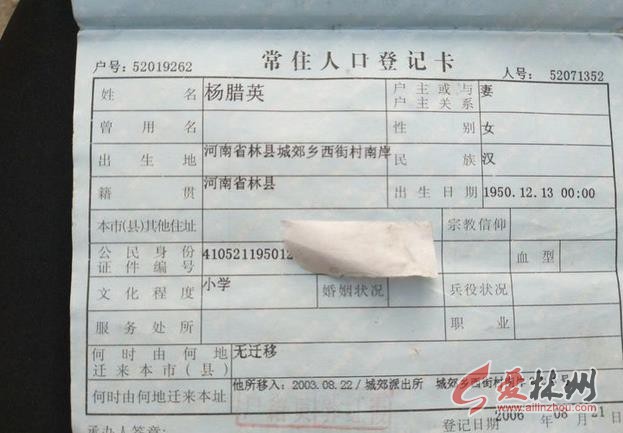 常住人口登记卡
户号: 52019262 人号: 52071352
姓名 杨腊英 户主或与户主关系 妻
曾用名 性别 女
出生地 河南省林县城郊乡西街村南岸 民族 汉
籍贯 河南省林县 出生日期 1950.12.13 00:00
本市(县)其他住址 宗教信仰
公民身份证件编号 410521195012 血型
文化程度 小学 婚姻状况 兵役状况
服务处所 职业
何时由何地迁来本市(县) 无迁移
何时由何地迁来本址 他所移入: 2003.08.22/城郊派出所 城郊乡西街村南岸 号
承办人签章: 登记日期 2006 年 08 月 21
爱林州
www.ailinzhou.com